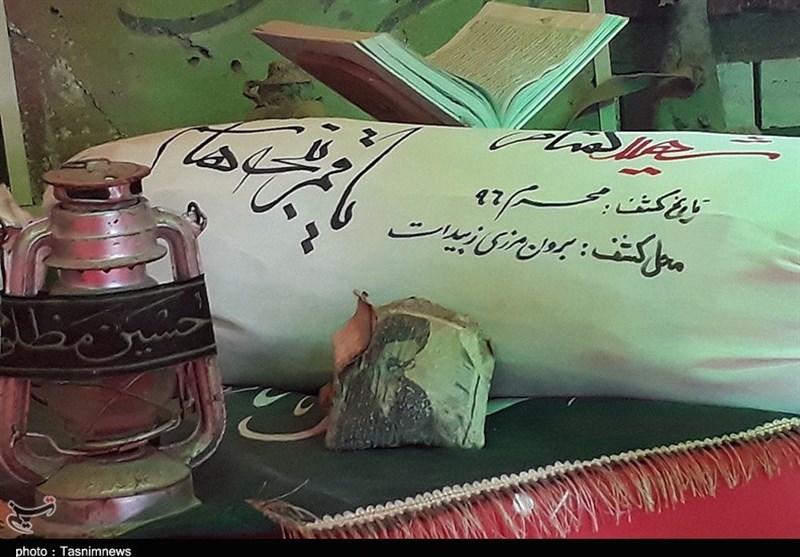 شهید گمنام
تاریخ کشف: محرم ۹۶
محل کشف: برون مرزی زبیدات
یا قمر بنی هاشم
حسین مظلوم
photo : Tasnimnews